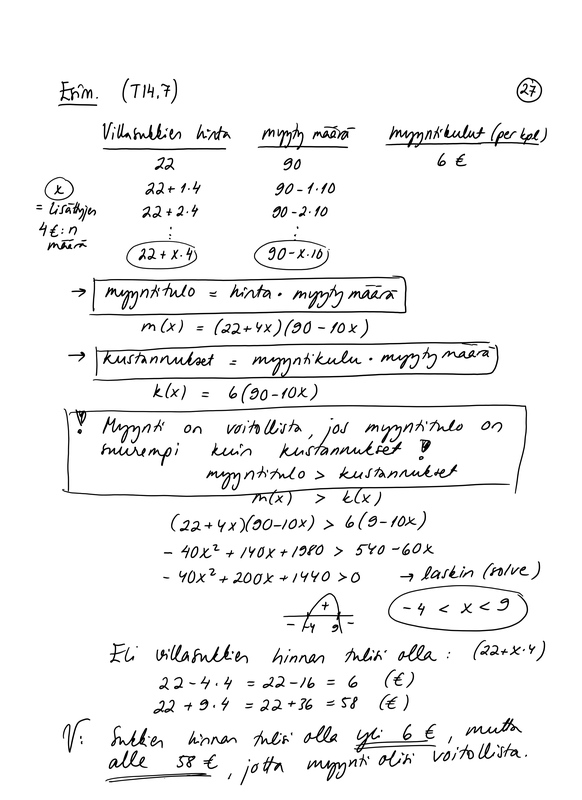 Esim. (T14.7) 27
Villasukkien hinta myyty määrä myyntikulut (per kpl)
22 90 6 €
x 22+1·4 90-1·10
= lisättyjen 22+2·4 90-2·10
4€:n ⋮ ⋮
määrä
22+x·4 90-x·10
→ myyntitulo = hinta · myyty määrä
m(x) = (22+4x)(90-10x)
→ kustannukset = myyntikulu · myyty määrä
k(x) = 6(90-10x)
! Myynti on voitollista, jos myyntitulo on
suurempi kuin kustannukset !
myyntitulo > kustannukset
m(x) > k(x)
(22+4x)(90-10x) > 6(9-10x)
-40x²+140x+1980 > 540-60x
-40x²+200x+1440>0 → laskin (solve)
+ -4 < x < 9
- -4 9 -
Eli villasukkien hinnan tulisi olla: (22+x·4)
22-4·4 = 22-16 = 6 (€)
22+9·4 = 22+36 = 58 (€)
V: Sukkien hinnan tulisi olla yli 6 €, mutta
alle 58 €, jotta myynti olisi voitollista.